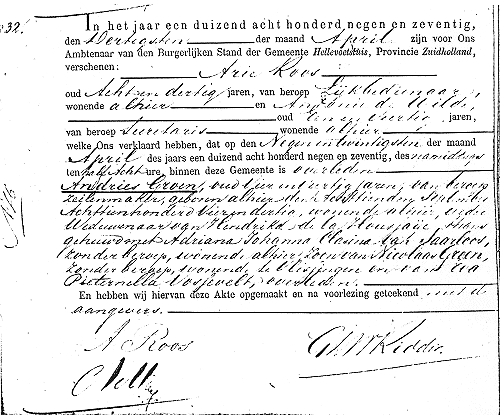 32.
In het jaar een duizend acht honderd negen en zeventig,
den Dertigsten der maand April zijn voor Ons
Ambtenaar van den Burgerlijken Stand der Gemeente Hellevoetsluis, Provincie Zuidholland,
verschenen:
Arie Roos
oud Acht en dertig jaren, van beroep Lijkbedienaar,
wonende alhier en Antonie de Wilde,
oud Een en veertig jaren,
van beroep Secretaris wonende alhier
welke Ons verklaard hebben, dat op den Negen en twintigsten der maand
April des jaars een duizend acht honderd negen en zeventig, des namiddags
ten half acht ure, binnen deze Gemeente is overleden
Andries Groen, oud vier en veertig jaren, van beroep
zeilenmaker, geboren alhier den September
Achttienhonderd vierendertig, wonende alhier, eerder
Weduwenaar van Hendrika de la thans
gehuwd met Adriana Johanna Clasina Jaarloos,
zonder beroep, wonende alhier, zoon van Nicolaas Groen,
zonder beroep, wonende te Vlissingen en van
Pieternella overleden.
En hebben wij hiervan deze Akte opgemaakt en na voorlezing geteekend met de
aangevers.
A Roos